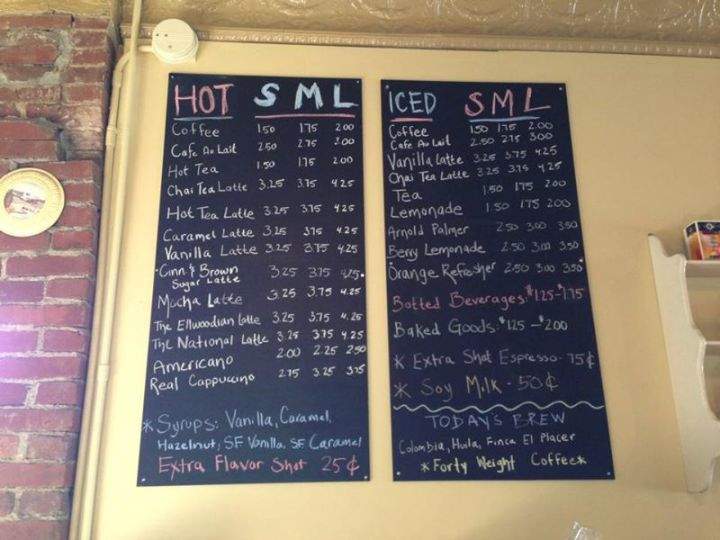 HOT S M L
Coffee 1.50 1.75 2.00
Cafe Au Lait 2.50 2.75 3.00
Hot Tea 1.50 1.75 2.00
Chai Tea Latte 3.25 3.75 4.25
Hot Tea Latte 3.25 3.75 4.25
Caramel Latte 3.25 3.75 4.25
Vanilla Latte 3.25 3.75 4.25
Cinn. & Brown Sugar Latte 3.25 3.75 4.25
Mocha Latte 3.25 3.75 4.25
The Ellwoodian Latte 3.25 3.75 4.25
The National Latte 3.25 3.75 4.25
Americano 2.00 2.25 2.50
Real Cappuccino 2.75 3.25 3.75
*Syrups: Vanilla, Caramel,
Hazelnut, SF Vanilla, SF Caramel
Extra Flavor Shot 25¢
ICED S M L
Coffee 1.50 1.75 2.00
Cafe Au Lait 2.50 2.75 3.00
Vanilla Latte 3.25 3.75 4.25
Chai Tea Latte 3.25 3.75 4.25
Tea 1.50 1.75 2.00
Lemonade 1.50 1.75 2.00
Arnold Palmer 2.50 3.00 3.50
Berry Lemonade 2.50 3.00 3.50
Orange Refresher 2.50 3.00 3.50
Botted Beverages: $1.25-$1.75
Baked Goods: $1.25-$2.00
* Extra Shot Espresso - 75¢
* Soy Milk - 50¢
TODAY'S BREW
Colombia, Huila, Finca El Placer
*Forty Weight Coffee*